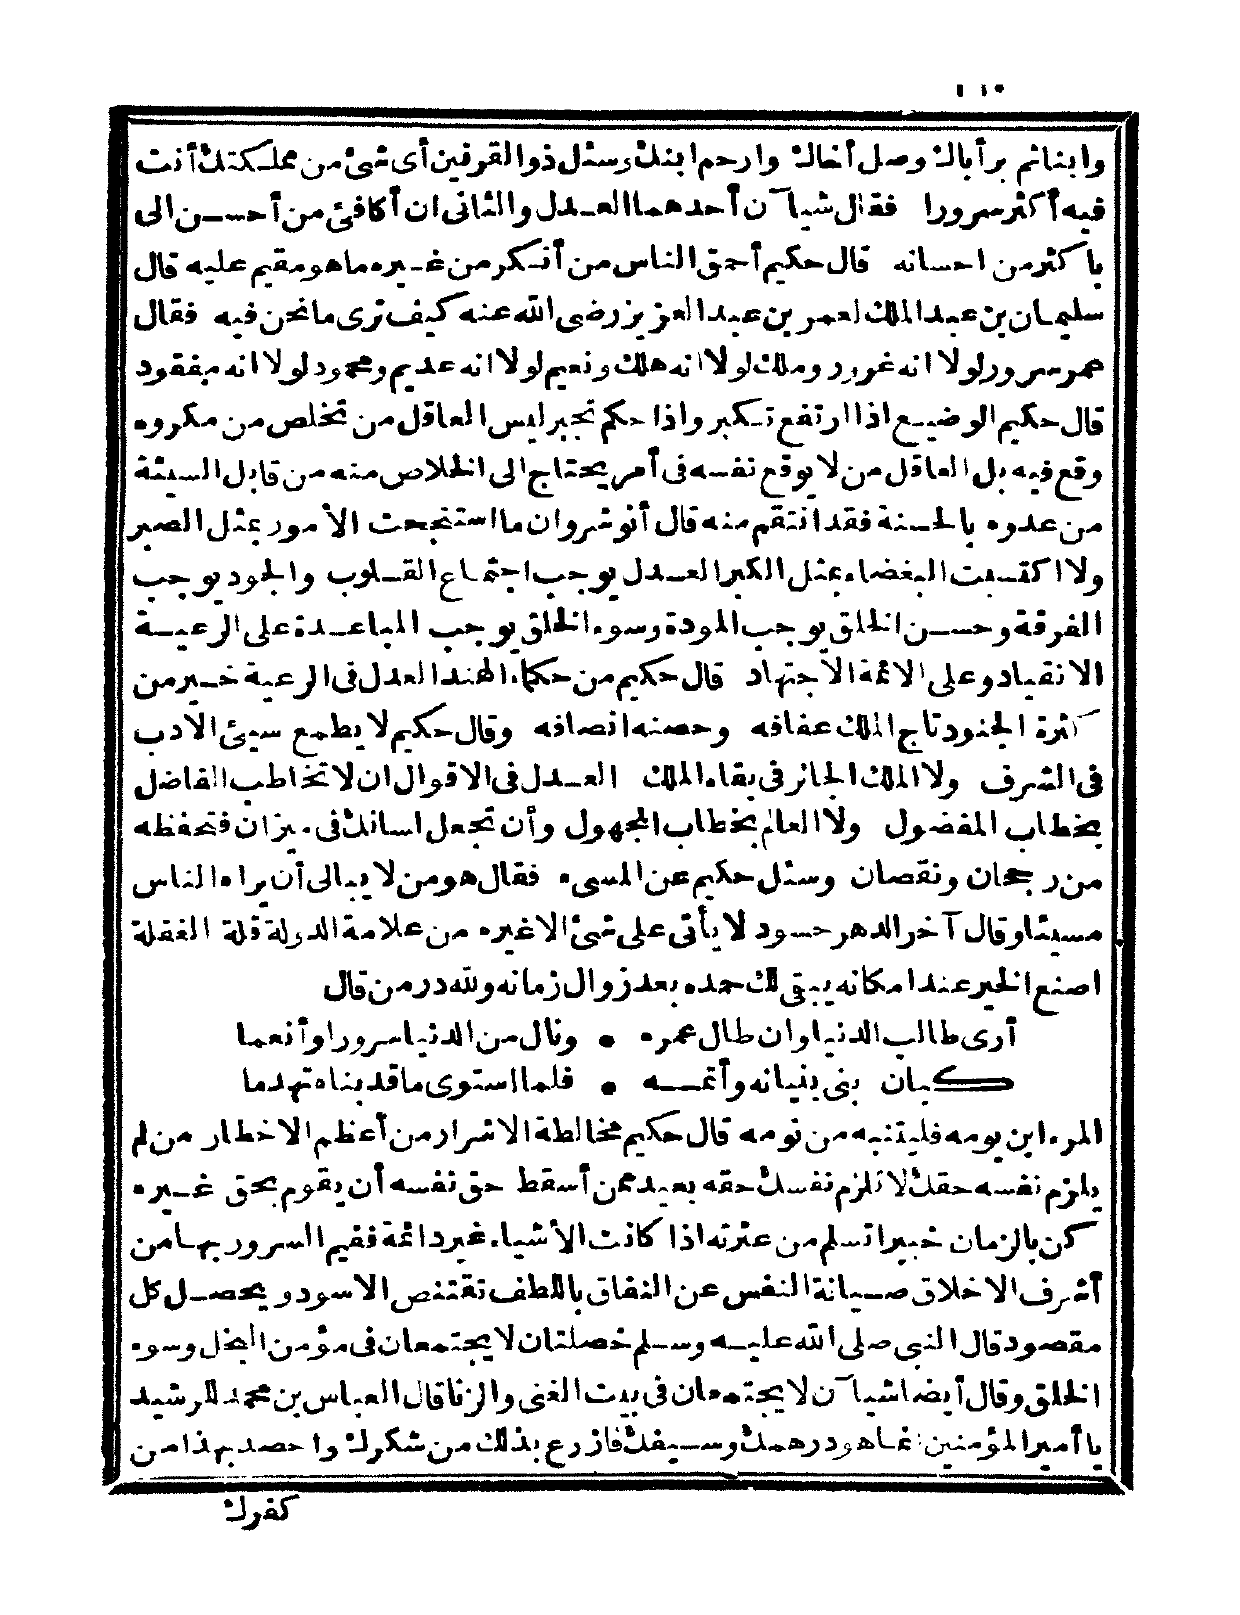 ١١٥
وابناثم برأباك وصل أخاك وارحم ابنك وسئل ذوالقرنين أى شئ من مملكتك أنت
فيه أكثر سرورا فقال شيآن أحدهما العدل والثانى ان أكافئ من أحسن الى
باكثر من احسانه قال حكيم أحمق الناس من أنكر من غيره ماهو مقيم عليه قال
سليمان بن عبد الملك لعمر بن عبد العزيز رضى الله عنه كيف ترى مانحن فيه فقال
عمر سرور لولا انه غرور وملك لولا انه هلك ونعيم لولا انه عديم ومحمود لولا انه مفقود
قال حكيم الوضيع اذا ارتفع تكبر واذا حكم تجبر ليس العاقل من تخلص من مكروه
وقع فيه بل العاقل من لا يوقع نفسه فى أمر يحتاج الى الخلاص منه من قابل السيئة
من عدوه بالحسنة فقد انتقم منه قال أنوشروان ما استنجحت الأمور بمثل الصبر
ولا اكتسبت البغضاء بمثل الكبر العدل يوجب اجتماع القلوب والجود يوجب
الفرقة وحسن الخلق يوجب المودة وسوء الخلق يوجب المباعدة على الرعية
الانقياد وعلى الائمة الاجتهاد قال حكيم من حكماء الهند العدل فى الرعية خير من
كثرة الجنود تاج الملك عفافه وحصنه انصافه وقال حكيم لا يطمع سيئ الادب
فى الشرف ولا الملك الجائر فى بقاء الملك العدل فى الاقوال ان لا تخاطب الفاضل
بخطاب المفضول ولا العالم بخطاب المجهول وأن تجعل لسانك فى ميزان فتحفظه
من رجحان ونقصان وسئل حكيم عن المسىء فقال هو من لا يبالى أن يراه الناس
مسيئا وقال آخر الدهر حسود لا يأتى على شئ الا غيره من علامة الدولة قلة الغفلة
اصنع الخير عند امكانه يبقى لك حمده بعد زوال زمانه ولله در من قال
أرى طالب الدنيا وان طال عمره • ونال من الدنيا سرورا وأنعما
كبان بنى بنيانه وأتمه • فلما استوى ماقد بناه تهدما
المرء ابن يومه فليتنبه من نومه قال حكيم مخالطة الاشرار من أعظم الاخطار من لم
يلزم نفسه حقك لا تلزم نفسك حقه بعيد ممن أسقط حق نفسه أن يقوم بحق غيره
كن بالزمان خبيرا تسلم من عثرته اذا كانت الأشياء غير دائمة ففيم السرور بها من
أشرف الاخلاق صيانة النفس عن النفاق باللطف تقتنص الاسود ويحصل كل
مقصود قال النبى صلى الله عليه وسلم خصلتان لا يجتمعان فى مؤمن البخل وسوء
الخلق وقال أيضا شيآن لا يجتمعان فى بيت الغنى والزنا قال العباس بن محمد للرشيد
يا أمير المؤمنين انما هو درهمك وسيفك فازرع بذلك من شكرك واحصد بهذا من
كفرك